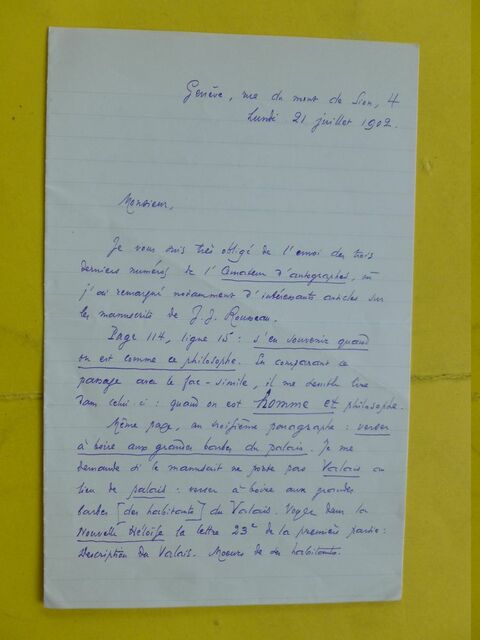 Genève, rue du mont de Sion, 4
Lundi 21 juillet 1902.
Monsieur,
Je vous suis très obligé de l'envoi des trois
derniers numéros de l'Amateur d'autographes, où
j'ai remarqué notamment d'intéressants articles sur
les manuscrits de J. J. Rousseau.
Page 114, ligne 15: s'en souvenir quand
on est comme ce philosophe. En comparant ce
passage avec le fac-simile, il me semble lire
dans celui-ci: quand on est homme et philosophe.
Même page, au troisième paragraphe: verser
à boire aux grandes barbes du palais. Je me
demande si le manuscrit ne porte pas Valais au
lieu de palais: verser à boire aux grandes
barbes [des habitants] du Valais. Voyez dans la
Nouvelle Héloïse la lettre 23e de la première partie:
Description du Valais. Moeurs de ses habitants.